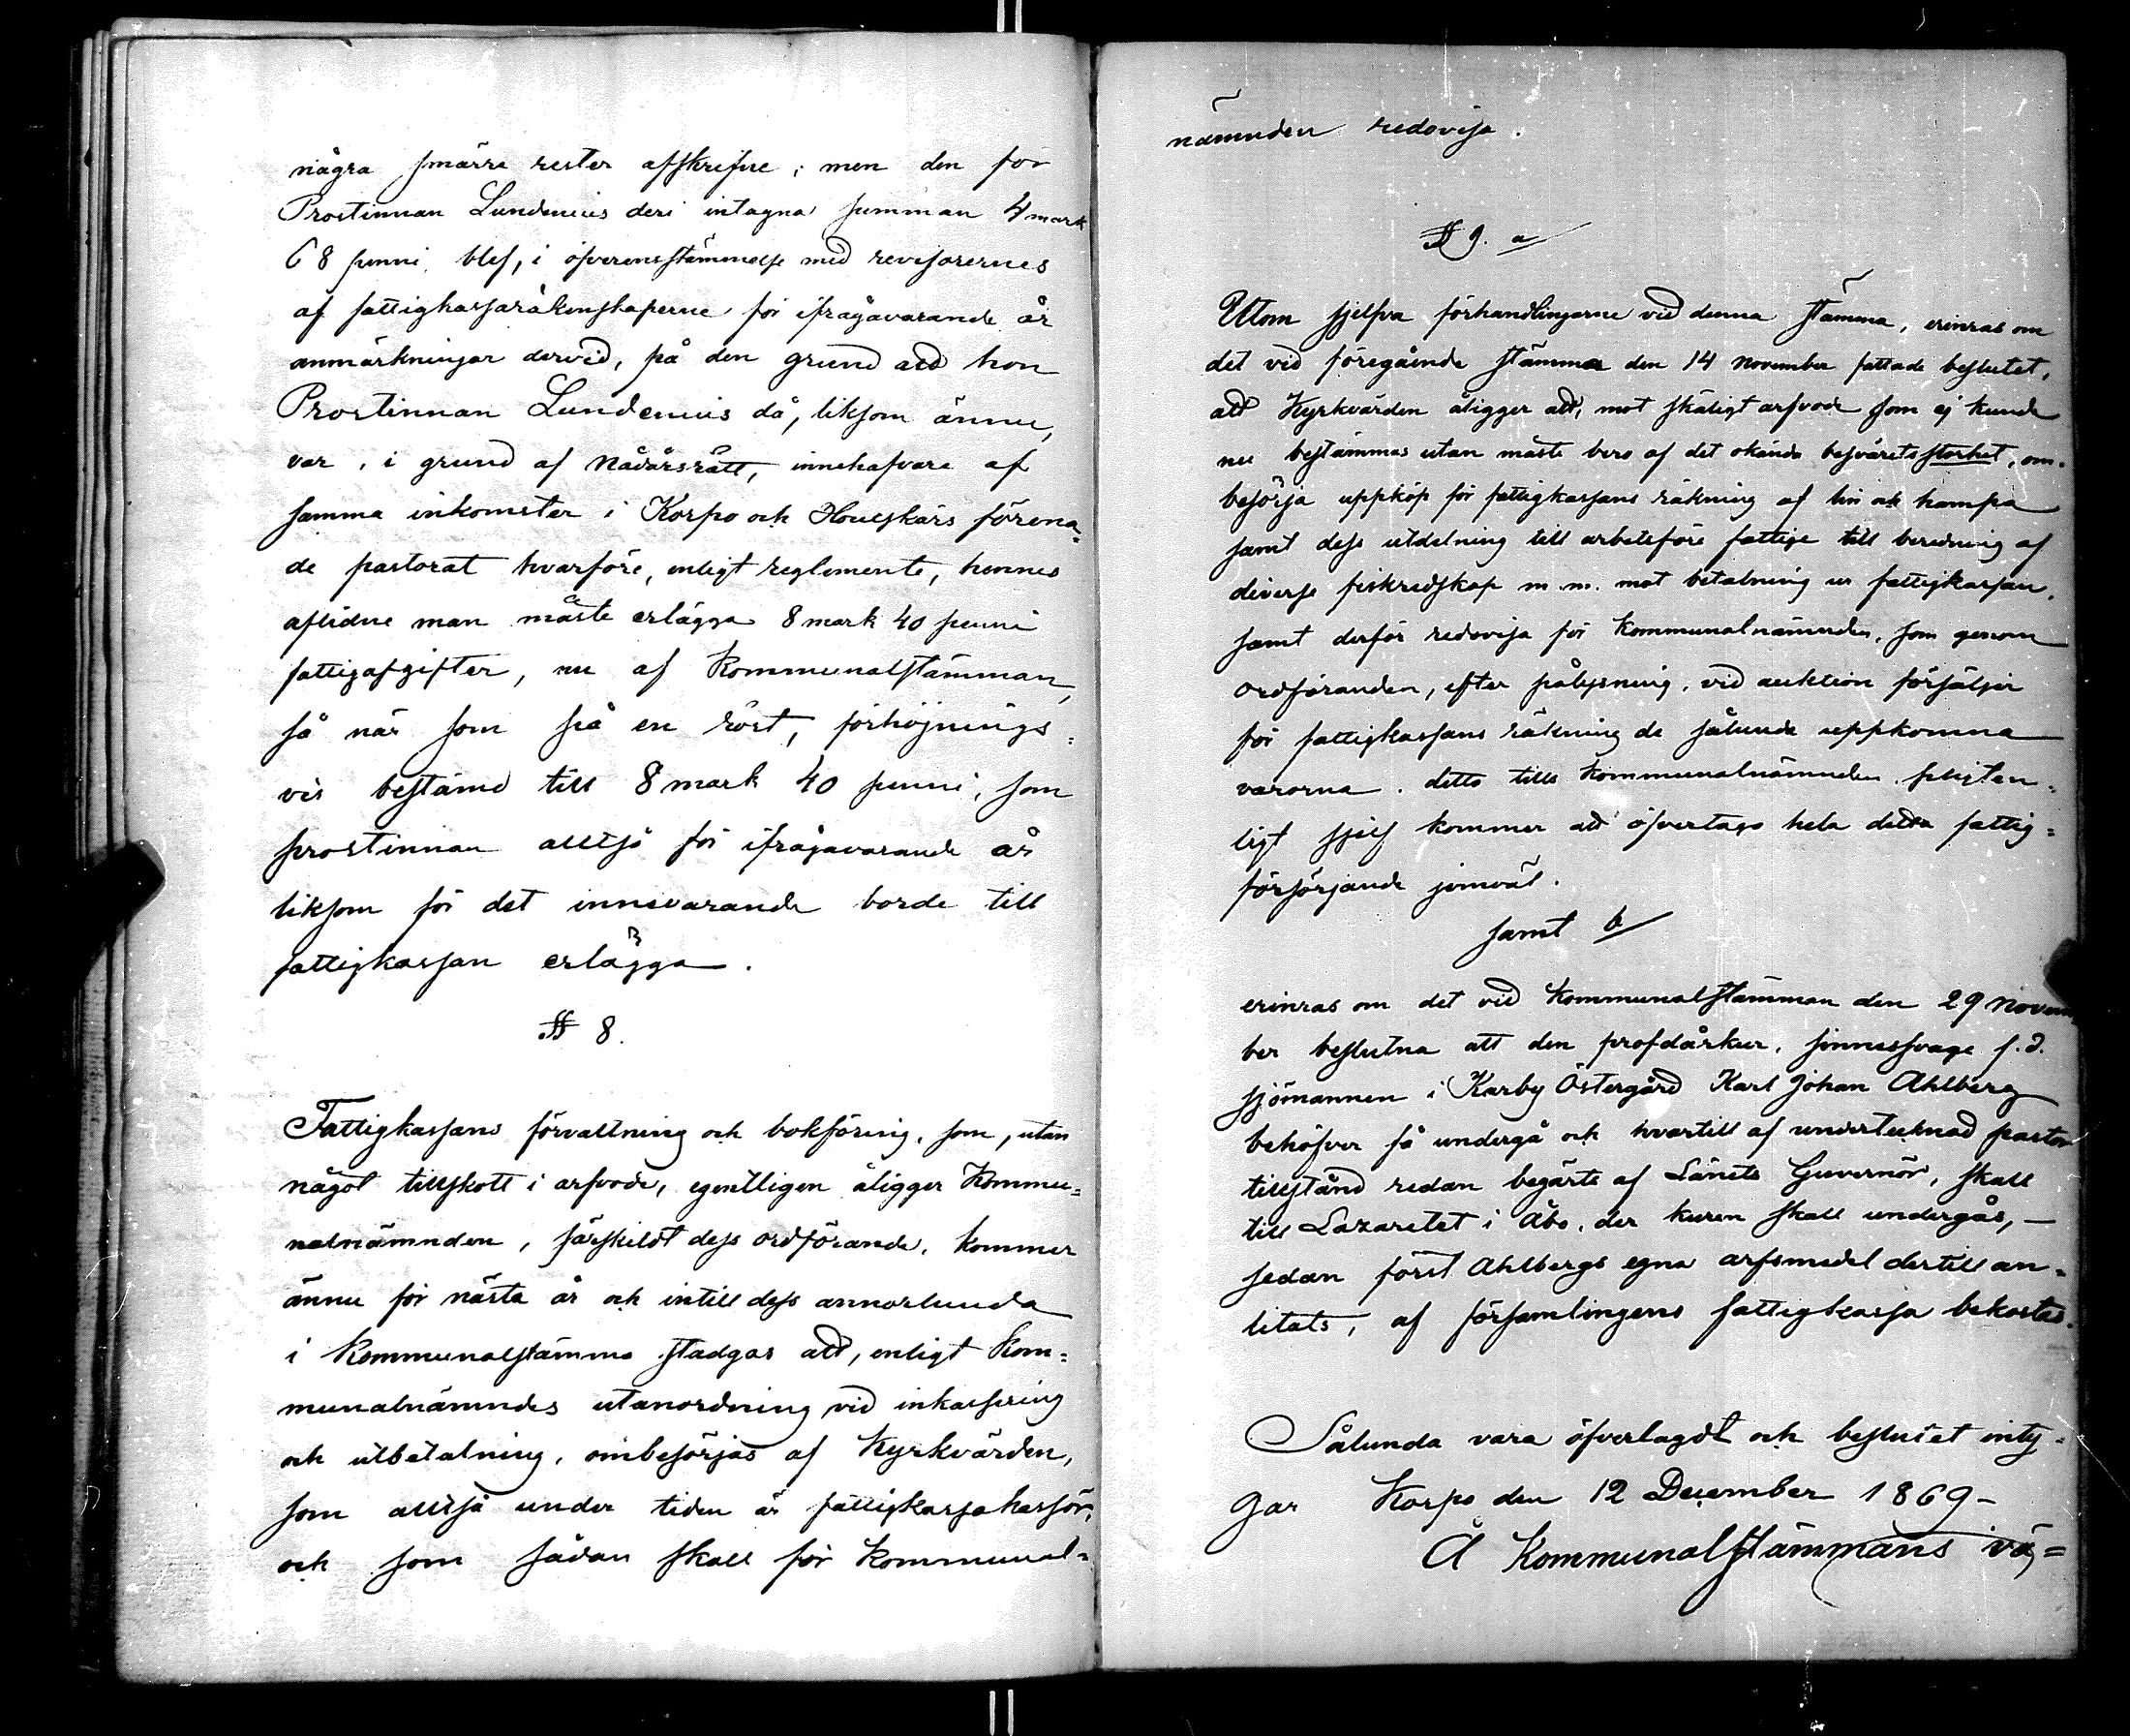 några smärre rester afskrifne; men den för
Prostinnan Lundenius deri intagna summan 4 mark
68 penni blef, i öfverensstämmelse med revisorernes
af fattigkassaräkenskaperne för ifrågavarande år
anmärkningar dervid, på den grund att hon
Prostinnan Lundenius då, liksom ännu,
var, i grund af Nådårsrätt, innehafvare af
samma inkomster i Korpo och Houtskärs förena-
de pastorat hvarföre, enligt reglemente, hennes
aflidne man måste erlägga 8 mark 40 penni
fattigafgifter, nu af Kommunalstämman,
så när som på en röst, förhöjnings-
vis bestämd till 8 mark 40 penni, som
prostinnan alltså för ifrågavarande år
liksom för det innevarande borde till
fattigkassan erlägga.
§ 8.
Fattigkassans förvaltning och bokföring, som, utan
något tillskott i arfvode, egentligen åligger Kommu=
nalnämnden, särskildt dess ordförande, kommer
ännu för nästa år och intill dess annorlunda
i Kommunalstämma stadgas att, enligt Kom=
munalnämndes utanordning vid inkassering
och utbetalning, ombesörjas af Kyrkvärden,
som alltså under tiden är fattigkassakassör,
och som sådan skall för Kommunal=
nämnden redovisa.
§ 9. a/
Utom sjelfva förhandlingarne vid denna stämma, erinras om
det vid föregående stämma den 14 November fattade beslutet,
att Kyrkvärden åligger att, mot skäligt arfvode som ej kunde
nu bestämmas utan måste bero af det okända besvärets storhet, om-
besörja uppköp för fattigkassans räkning af lin och hampa
samt dess utdelning till arbetsföre fattige till beredning af
diverse fiskredskap m.m. mot betalning ur fattigkassan,
samt derför redovisa för Kommunalnämnden, som genom
Ordföranden, efter pålysning, vid auktion försäljer
för fattigkassans räkning de sålunda uppkomna
varorna. detta tills Kommunalnämnden
ligt sjelf kommer att öfvertaga hela detta fattig=
försörjande jemväl.
samt b/
erinras om det vid Kommunalstämman den 29 Novem
ber beslutna att den profdårkur, sinnessvage f.d.
sjömannen i Karby Östergård Karl Johan Ahlberg
behöfver få undergå och hvartill af undertecknad pastor
tillstånd redan begärts af Länets Guvernör, skall
till Lazarettet i Åbo, der kuren skall undergås, —
sedan först Ahlbergs egna arfsmedel dertill an-
litats, af församlingens fattigkassa bekostas.
Sålunda vara öfverlagdt och beslutet inty-
gar Korpo den 12 December 1869 –
Å Kommunalstämmans väg=